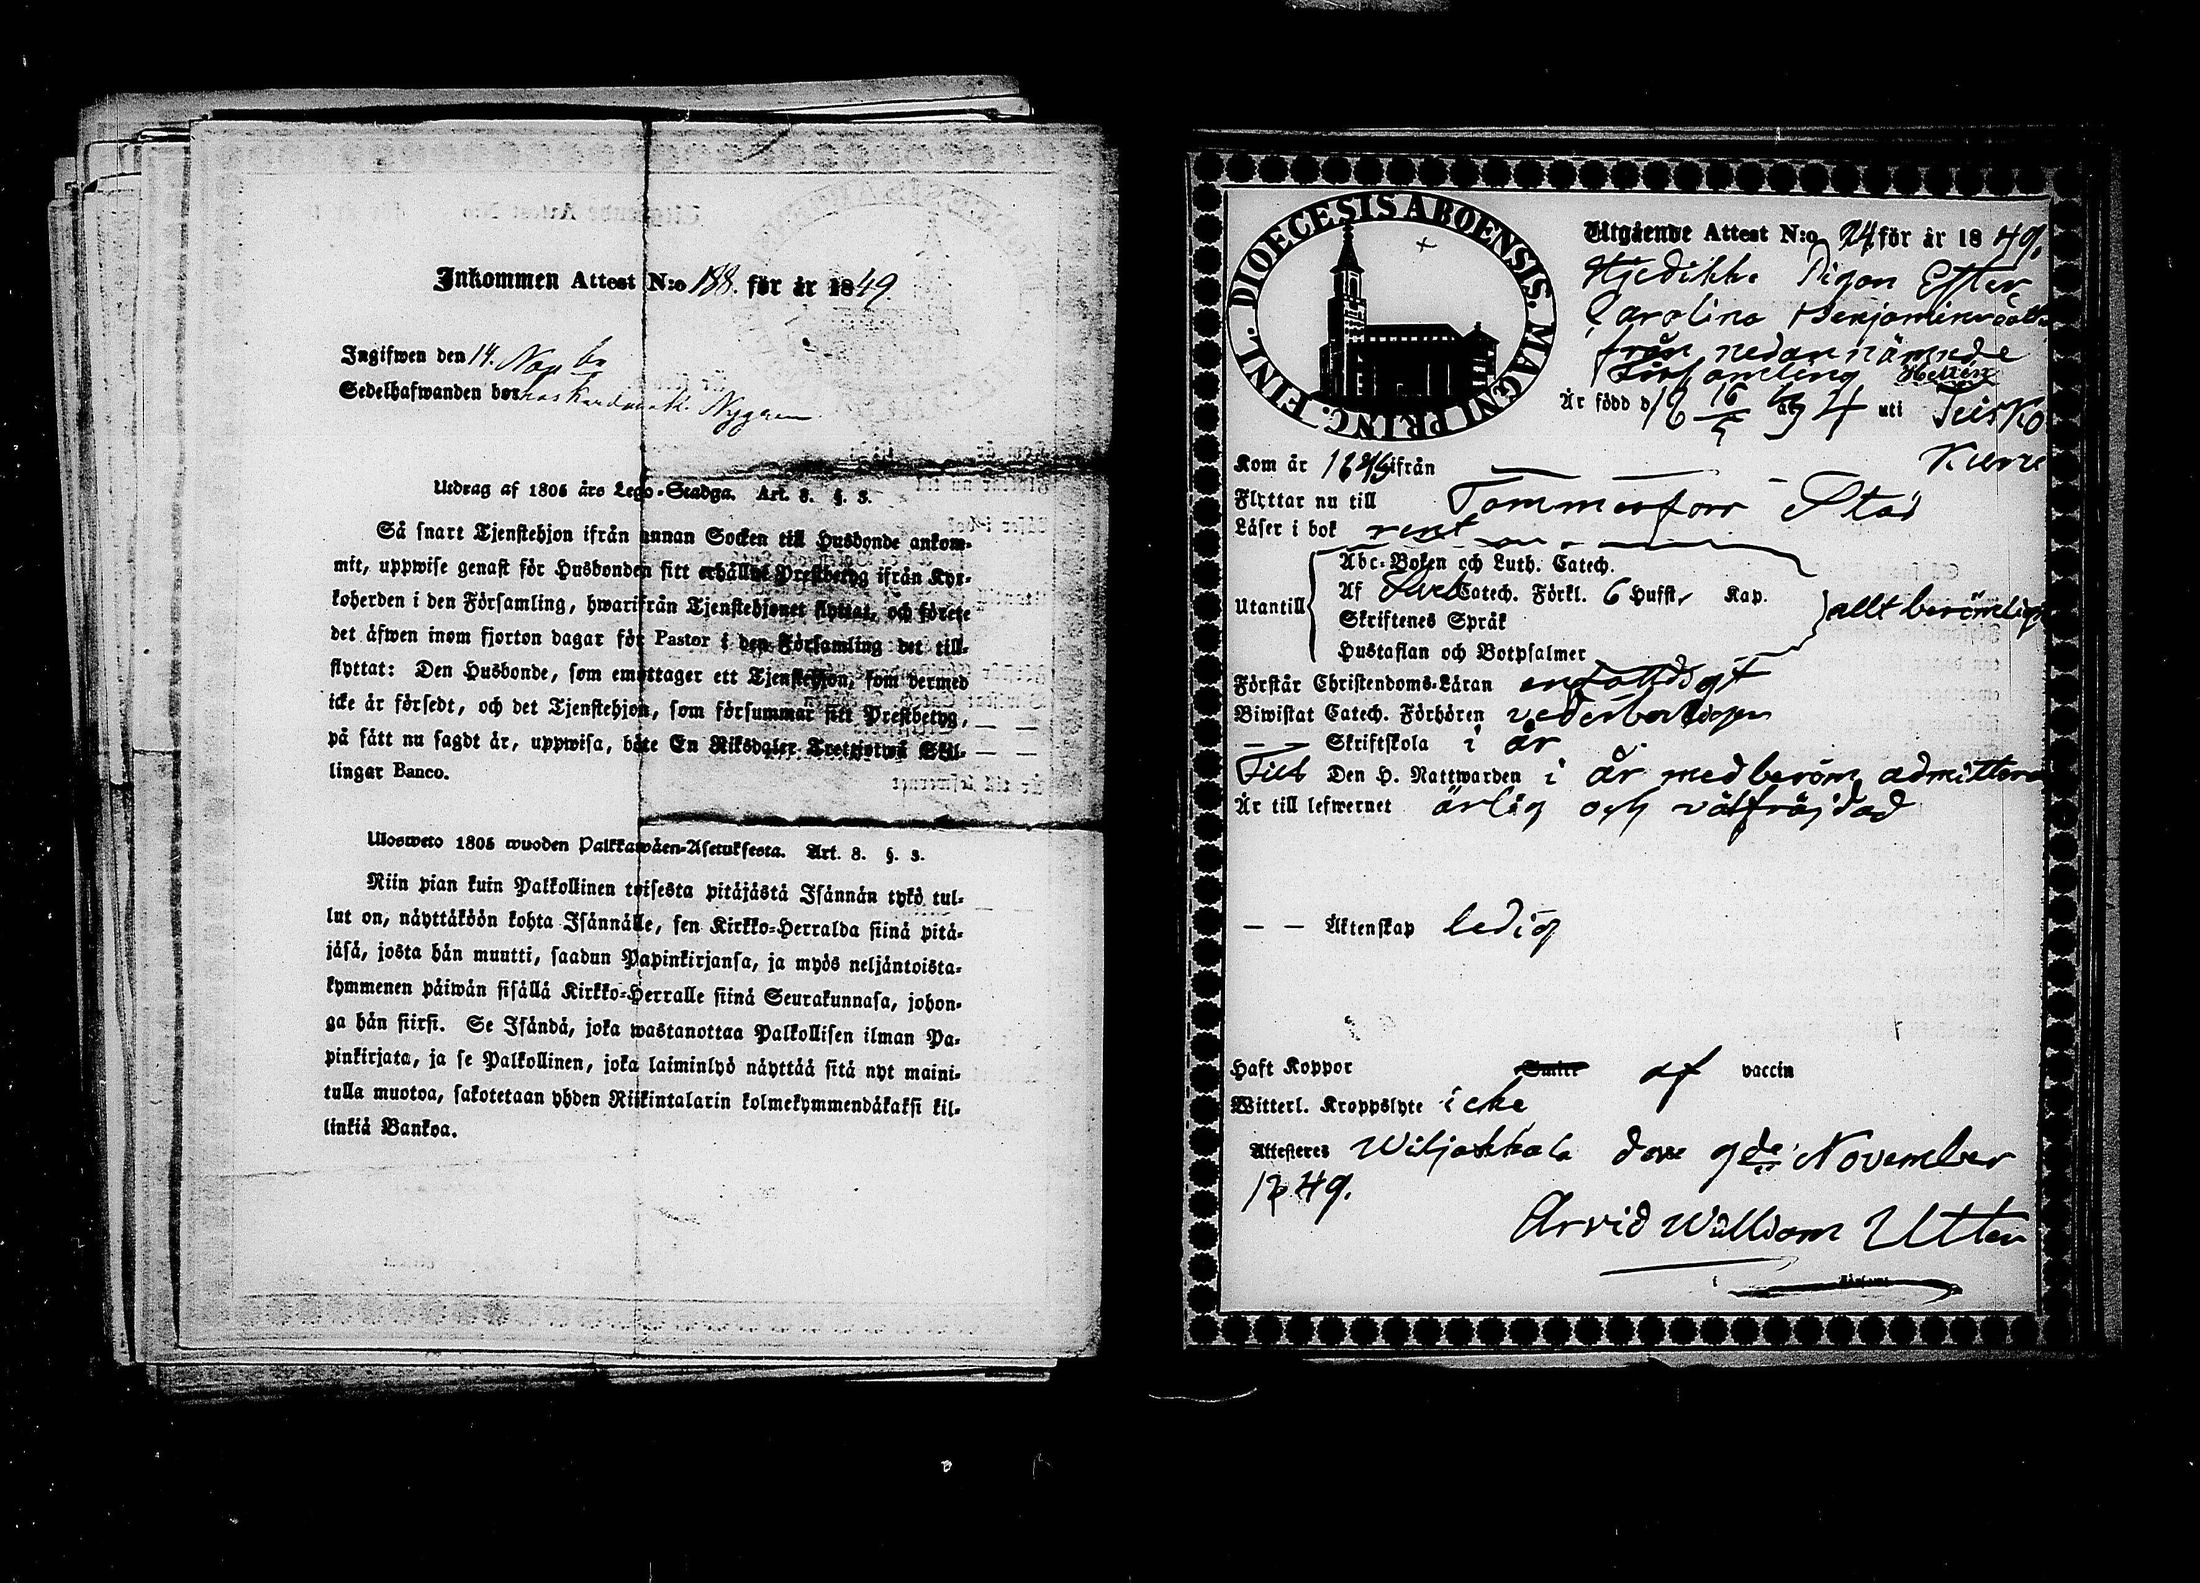 Inkommen Attest N:o 188. för år 1849.
Ingifwen den 14. Novbr
Sedelhafwanden bor hos Nygren
Utdrag af 1805 års Lego-Stadga. Art. 8. §. 3.
Så snart Tjenstehjon ifrån annan Socken till Husbonde ankom-
mit, uppwise genast för Husbonden sitt erhållne Prestbetyg ifrån Kyr-
koherden i den Församling, hwarifrån Tjenstehjonet flyttat, och förete
det äfwen inom fjorton dagar för Pastor i den Församling det till-
flyttat: Den Husbonde, som emottager ett Tjenstehjon, som dermed
icke är försedt, och det Tjenstehjon, som försummar sitt Prestbetyg,
på sätt nu sagdt är, uppwisa, böte En Riksdaler Trettiotwå Skil-
lingar Banco.
Ulosweto 1805 wuoden Palkkawäen-Asetuksesta. Art. 8. §. 3.
Niin pian kuin Palkollinen toisesta pitäjästä Isännän tykö tul-
lut on, näyttäköön kohta Isännälle, sen Kirkko-Herralda siinä pitä-
jäsä, josta hän muutti, saadun Papinkirjansa, ja myös neljäntoista-
kymmenen päiwän sisällä Kirkko-Herralle siinä Seurakunnasa, johon-
ga hän siirsi. Se Isändä, joka wastanottaa Palkollisen ilman Pa-
pinkirjata, ja se Palkollinen, joka laiminlyö näyttää sitä nyt maini-
tulla muotoa, sakotetaan yhden Riikintalarin kolmekymmendäkaksi kil-
linkiä Bankoa.
DIOECESIS ABOENSIS. MAGNI PRINC. FINL.
Utgående Attest N:o 24 för år 1849.
Pigan Ester
Carolina Benjaminsdotter
från nedannämnde
Församling
Är född d 16/5 34 uti Teisko
Kuru
Kom år 1849 ifrån
Flyttar nu till Tammerfors Stad
Läser i bok rent
Abc-Boken och Luth. Catech.
Utantill Af Catech. Förkl. 6 Hufst. Kap. allt berömligt
Skriftenes Språk
Hustaflan och Botpsalmer
Förstår Christendoms-Läran enfaldigt
Biwistat Catech. Förhören vederbörligen
— — Skriftskola i år
Till Den H. Nattwarden i år med beröm admitterad
Är till lefwernet ärlig och välfräjdad
— — Äktenskap ledig
Haft Koppor af vaccin
Witterl. Kroppslyte icke
Attesteres Wiljakkala den 9de November
1849.
Arvid William Utter